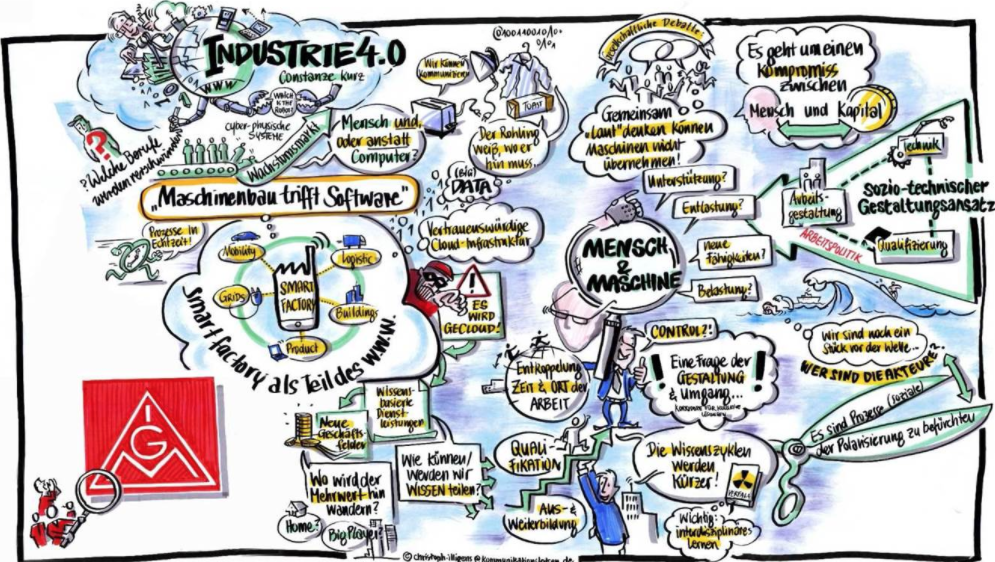 INDUSTRIE 4.0
Constanze Kurz
WWW
WHICH
IS THE
ROBOT?
cyber-physische
SYSTEME
? Welche Berufe
werden verschwinden
Wachstumsmarkt
Mensch und,
oder anstatt
Computer?
Wir können
kommunizieren
TOAST
Der Rohling
weiß, wo er
hin muss...
„Maschinenbau trifft Software"
(BIG)
DATA
Vertrauenswürdige
Cloud-Infrastruktur
Prozesse in
Echtzeit!
Mobility
Logistic
GRIDS
SMART
FACTORY
Buildings
Product
Smart factory als Teil des W.W.W.
ES
WIRD
GECLOUD!
Wissens-
basierte
Dienst-
leistungen
Neue
Geschäfts
felder
Wo wird der
Mehrwert hin
wandern?
Home?
Big Player?
Wie können/
werden wir
WISSEN teilen?
IGM
Gesellschaftliche Debatte:
Gemeinsam
„laut" denken können
Maschinen nicht
übernehmen!
Es geht um einen
Kompromiss
zwischen
Mensch und Kapital
Unterstützung?
Entlastung?
MENSCH
&
MASCHINE
neue
Fähigkeiten?
Belastung?
Technik
Arbeits-
gestaltung
Sozio-technischer
Gestaltungsansatz
ARBEITSPOLITIK
Qualifizierung
CONTROL?!
Entkoppelung
ZEIT & ORT der
ARBEIT
! Eine Frage der !
GESTALTUNG
& Umgang...
Wir sind noch ein
Stück vor der Welle...
WER SIND DIE AKTEURE?
Es sind Prozesse (soziale)
der Polarisierung zu befürchten
QUALI-
FIKATION
Aus- &
Weiterbildung
Die Wissenszyklen
werden
Kürzer!
VERFALL
Wichtig:
interdisziplinäres
Lernen